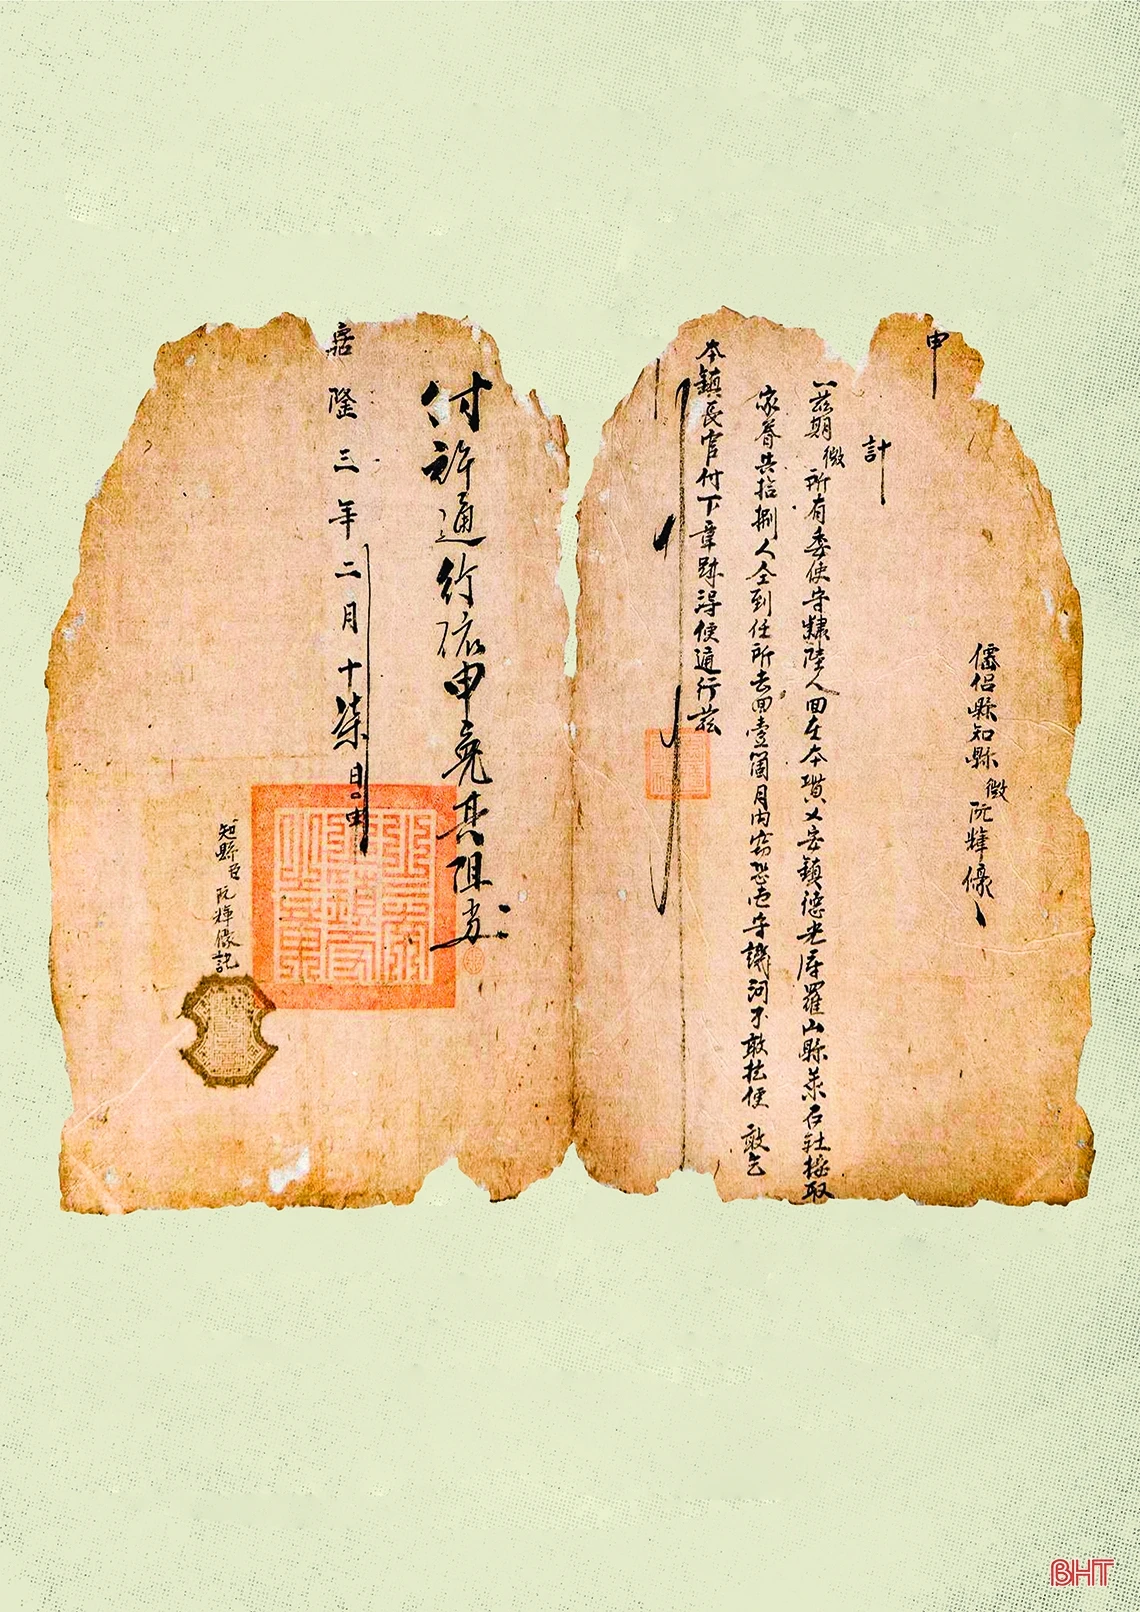 僊侶縣知縣微阮輝儴
申
計
一茲期微所有委使守隸陸人回在本貫乂安鎮德光府羅山縣萊石社接取
家眷共拾捌人仝到任所去回壹箇月內窃恐巴守譏河不敢扺便 敢乞
本鎮長官付下章跡得便通行茲
付許通行依申毋其阻
嘉隆三年二月十柒日申
知縣臣阮輝儴記
BHT